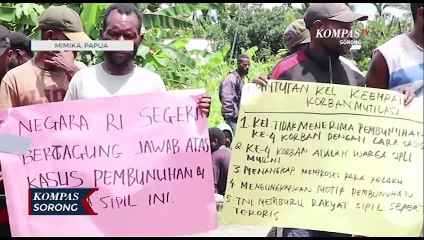 KOMPAS TV
SORONG
MIMIKA, PAPUA
NEGARA RI SEGERA
BERTAGUNG JAWAB ATAS
KASUS PEMBUNUHAN 4
SIPIL INI.
TUNTUTAN KEL KEEMPAT
KORBAN MUTILASI
1. KEL TIDAK MENERIMA PEMBUNUHAN
KE-4 KORBAN DENGAN CARA
2. KE-4 KORBAN ADALAH WARGA SIPIL
MURNI
3. MENANGKAP, MEMPROSES PARA PELAKU
4. MENGUNGKAPKAN MOTIF PEMBUNUHAN
5. TNI MEMBURU RAKYAT SIPIL
TERORIS
KOMPAS TV
SORONG